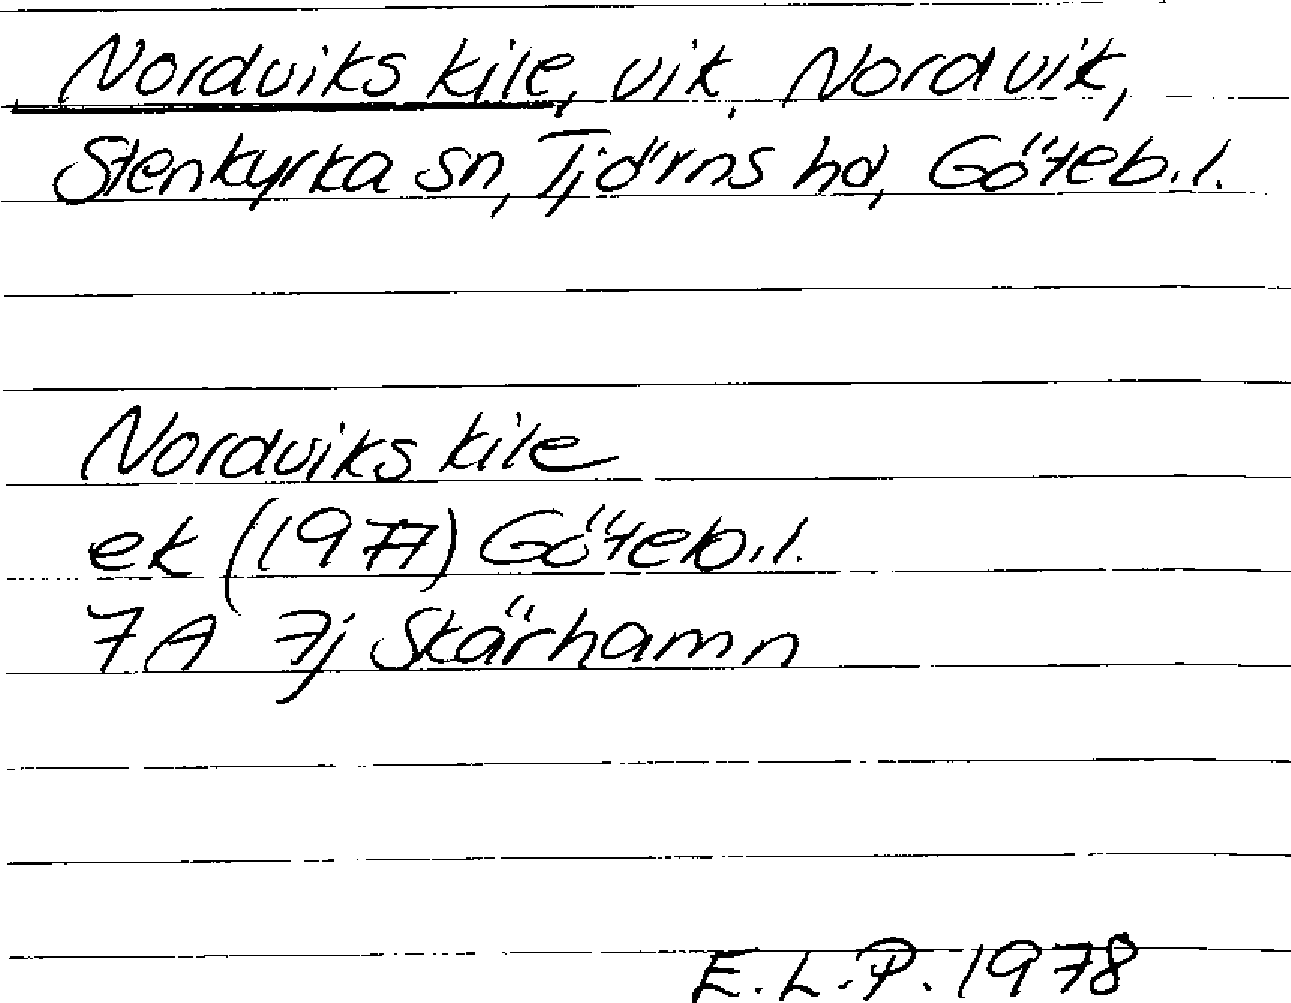 Nordviks kile, vik, Nordvik,
Stenkyrka sn, Tjörns hd, Göteb.l.
Nordviks kile
ek (1977) Göteb.l.
7A 7j Skärhamn
E.L.P. 1978